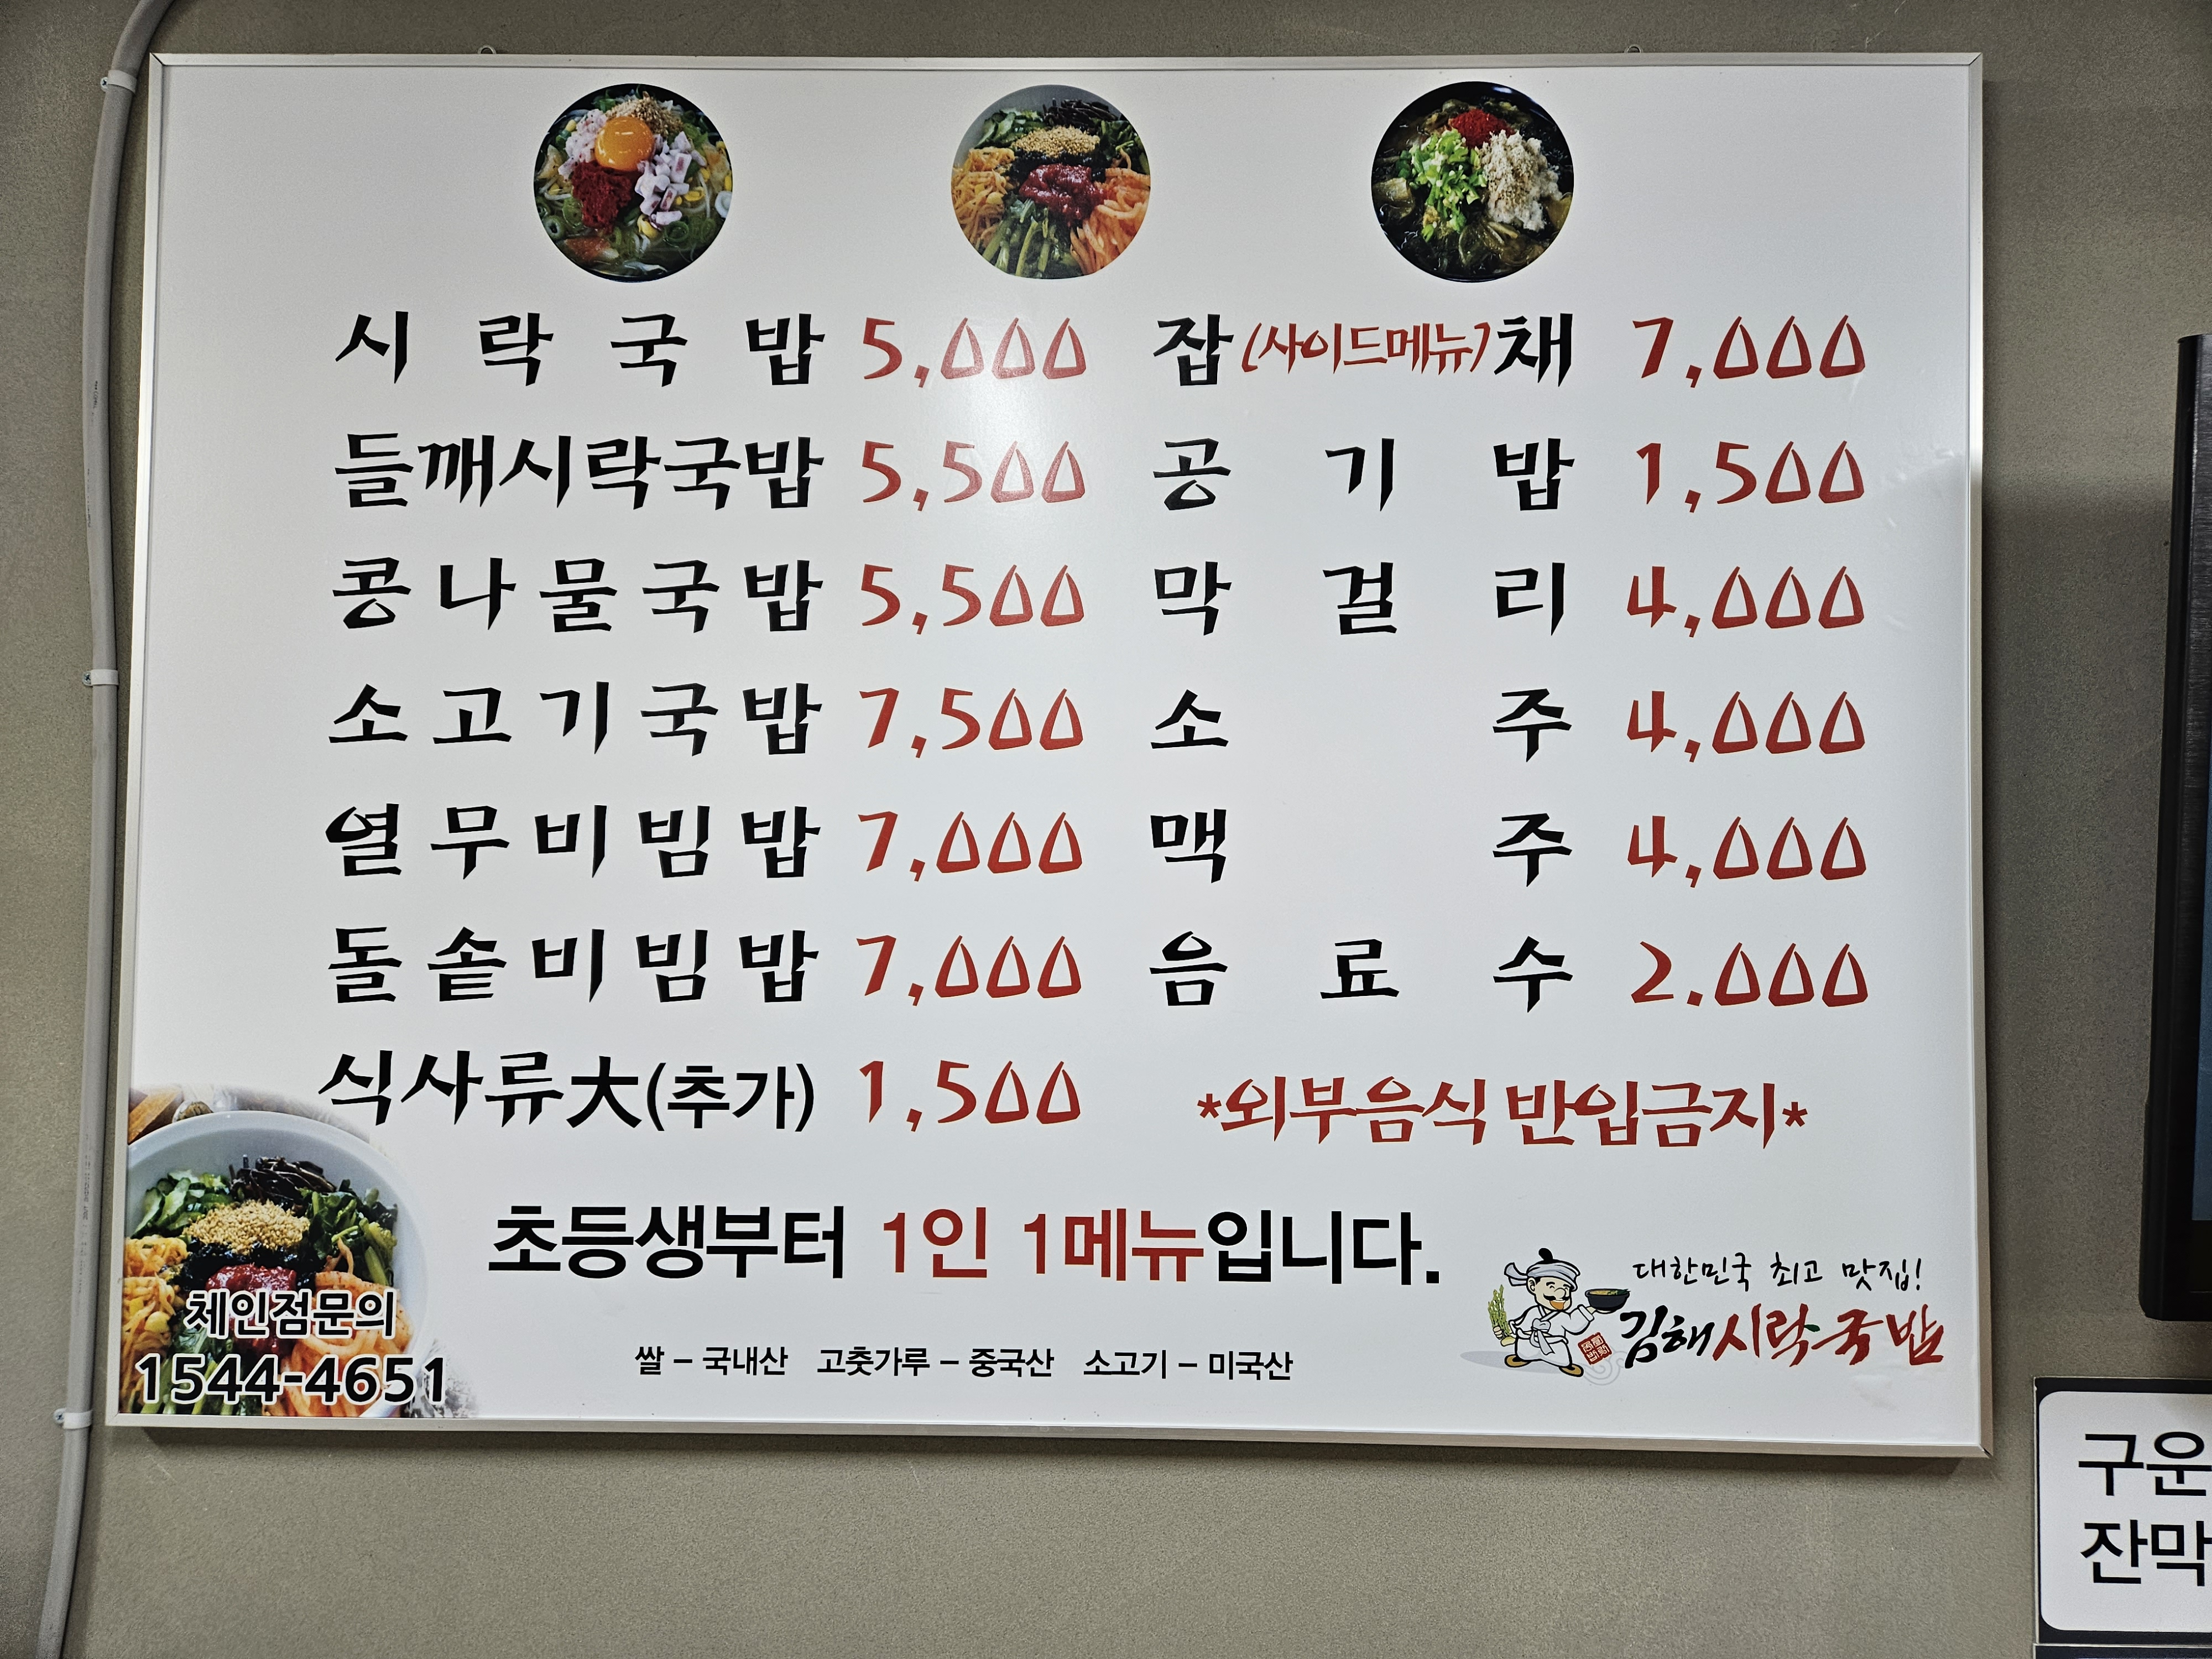 시락국밥 5,000
들깨시락국밥 5,500
콩나물국밥 5,500
소고기국밥 7,500
열무비빔밥 7,000
돌솥비빔밥 7,000
식사류大(추가) 1,500
잡(사이드메뉴)채 7,000
공기밥 1,500
막걸리 4,000
소주 4,000
맥주 4,000
음료수 2.000
*외부음식 반입금지*
초등생부터 1인 1메뉴입니다.
체인점문의
1544-4651
쌀 - 국내산 고춧가루 - 중국산 소고기 - 미국산
대한민국 최고 맛집!
김해시락국밥
구운
잔막